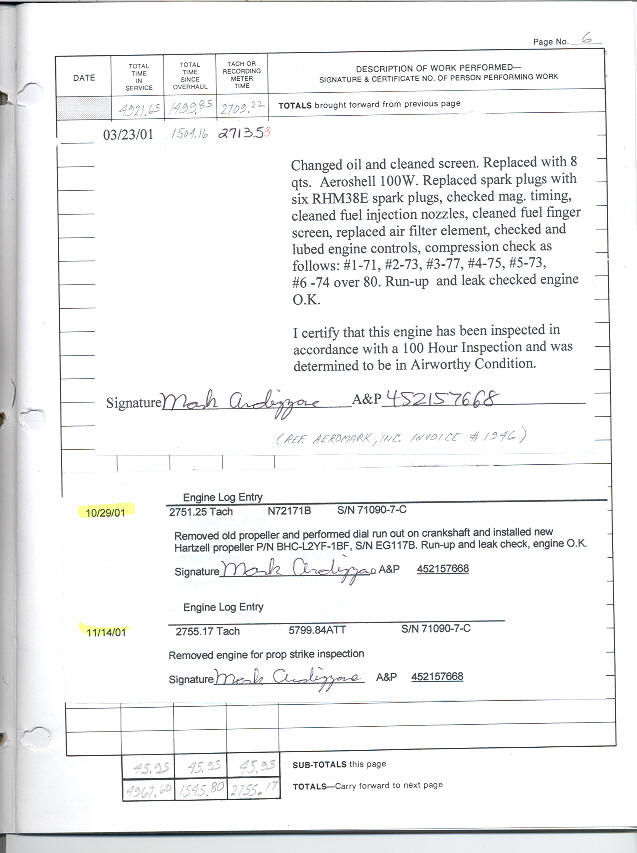 Page No. 6
DATE
TOTAL TIME IN SERVICE
TOTAL TIME SINCE OVERHAUL
TACH OR RECORDING METER TIME
DESCRIPTION OF WORK PERFORMED—
SIGNATURE & CERTIFICATE NO. OF PERSON PERFORMING WORK
4921.65 1499.85 2709.22 TOTALS brought forward from previous page
03/23/01 1504.16 2713.53
Changed oil and cleaned screen. Replaced with 8
qts. Aeroshell 100W. Replaced spark plugs with
six RHM38E spark plugs, checked mag. timing,
cleaned fuel injection nozzles, cleaned fuel finger
screen, replaced air filter element, checked and
lubed engine controls, compression check as
follows: #1-71, #2-73, #3-77, #4-75, #5-73,
#6 -74 over 80. Run-up and leak checked engine
O.K.
I certify that this engine has been inspected in
accordance with a 100 Hour Inspection and was
determined to be in Airworthy Condition.
Signature Mark Ardizzone A&P 452157668
(REF. AEROMARK, INC. INVOICE # 1946)
Engine Log Entry
10/29/01 2751.25 Tach N72171B S/N 71090-7-C
Removed old propeller and performed dial run out on crankshaft and installed new
Hartzell propeller P/N BHC-L2YF-1BF, S/N EG117B. Run-up and leak check, engine O.K.
Signature Mark Ardizzone A&P 452157668
Engine Log Entry
11/14/01 2755.17 Tach 5799.84ATT S/N 71090-7-C
Removed engine for prop strike inspection
Signature Mark Ardizzone A&P 452157668
45.95 45.95 45.95 SUB-TOTALS this page
4967.60 1545.80 2755.17 TOTALS—Carry forward to next page